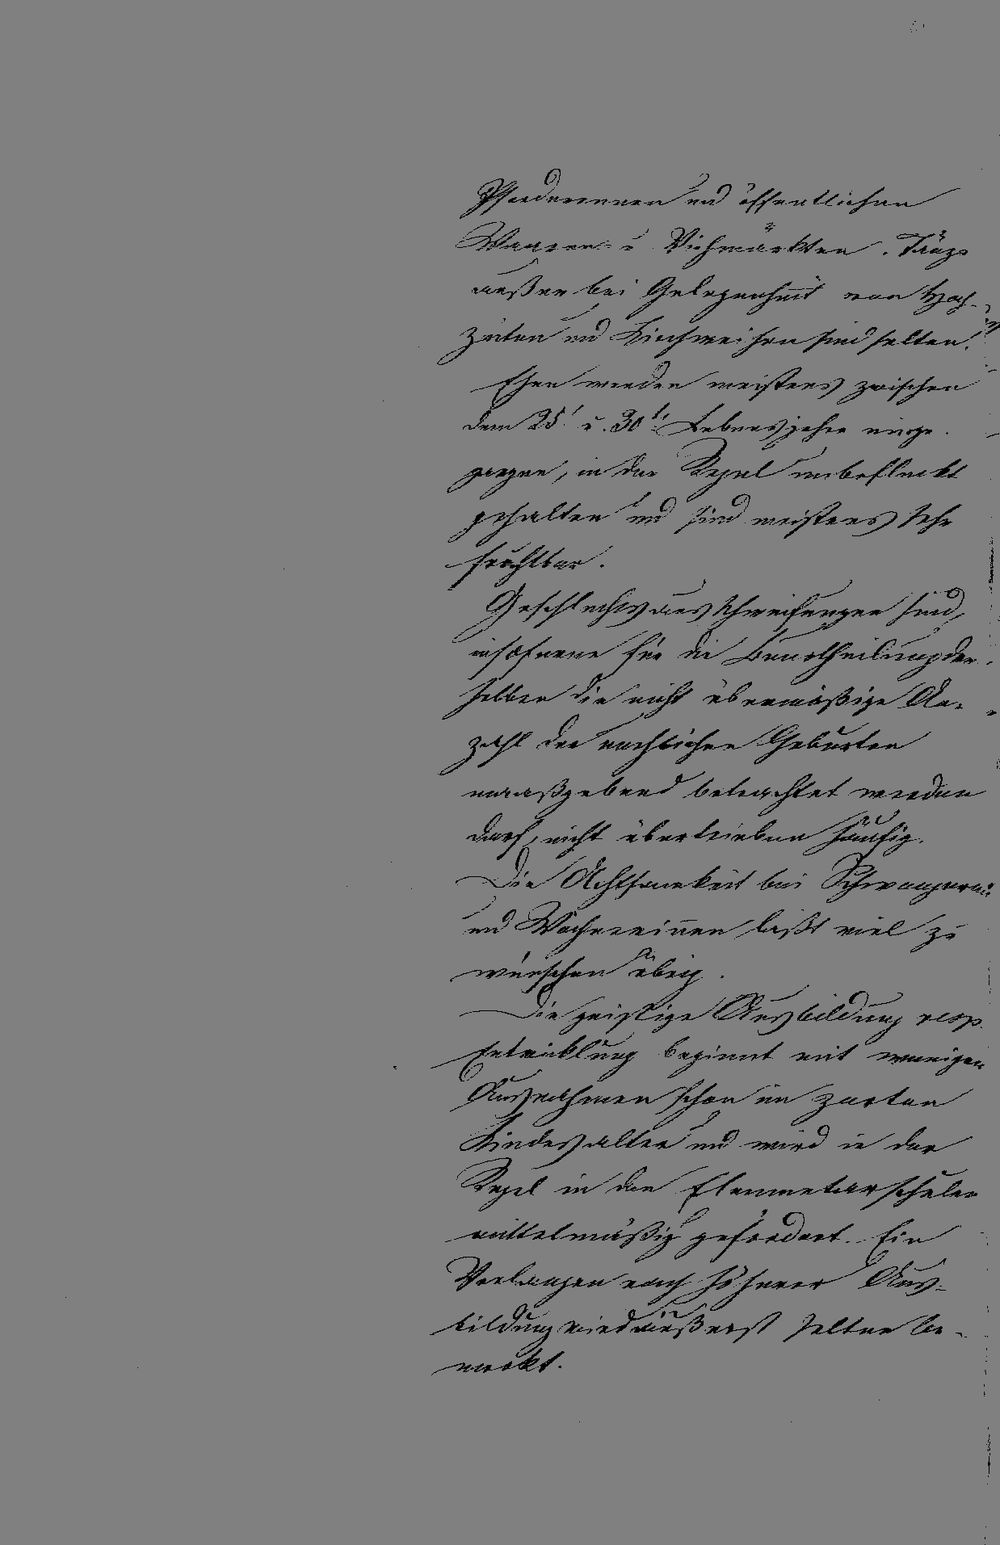 Pferderennen und öffentlichen
Waaren- u. Viehmärkten. Tänze
außer bei Gelegenheit von Hoch-
zeiten und Kirchweihen sind selten.
Ehen werden meistens zwischen
dem 25t. u. 30t. Lebensjahre einge-
gangen, in der Regel unbefleckt
gehalten und sind meistens sehr
fruchtbar.
Geschlechtsausschweifungen sind,
insoferne für die Beurtheilung der-
selben die nicht übermäßige An-
zahl der unehlichen Geburten
maaßgebend betrachtet werden
darf, nicht übertrieben häufig.
Die Achtsamkeit bei Schwangeren
und Wöchnerinnen läßt viel zu
wünschen übrig.
Die geistige Ausbildung resp.
Entwicklung beginnt mit wenigen
Ausnahmen schon im zarten
Kindesalter und wird in der
Regel in den Elementarschulen
mittelmäßig gefördert. Ein
Verlangen nach höherer Aus-
bildung wird äußerst selten be-
merkt.